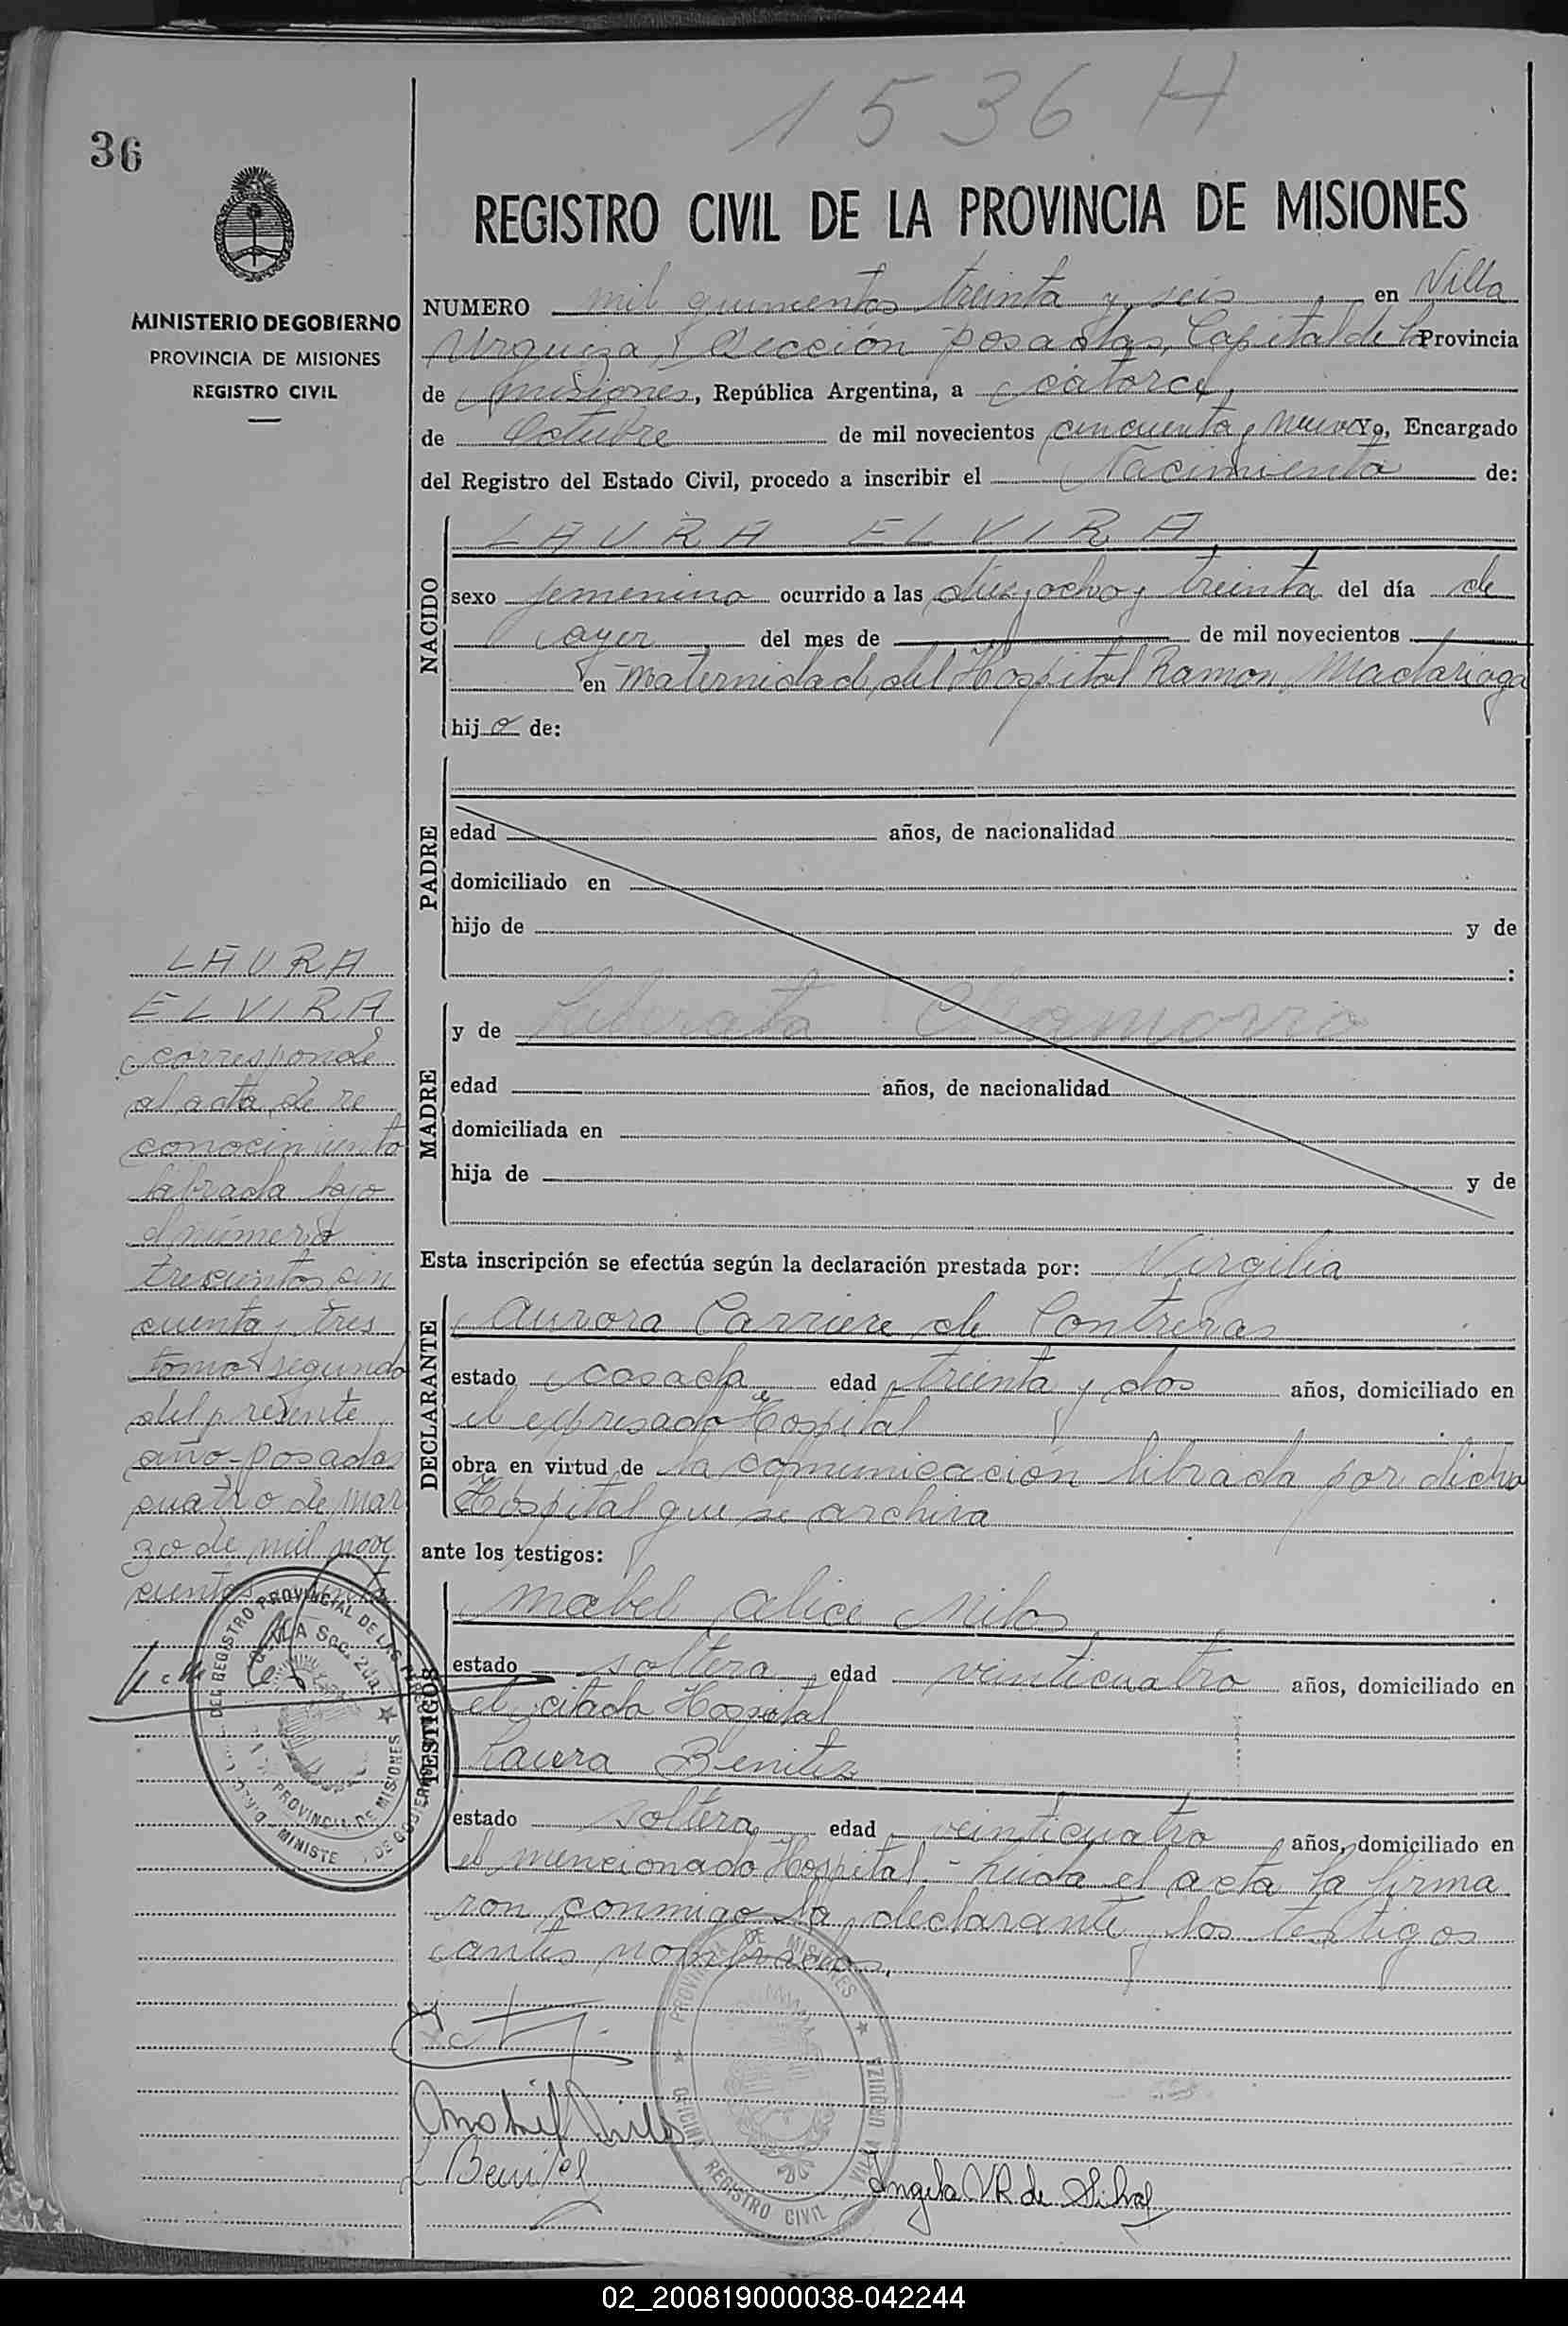 1536 H
36
REGISTRO CIVIL DE LA PROVINCIA DE MISIONES
MINISTERIO DE GOBIERNO
PROVINCIA DE MISIONES
REGISTRO CIVIL
NUMERO mil quinientos treinta y seis en Villa
Urquiza, Sección Posadas, Capital de la Provincia
de Misiones, República Argentina, a catorce,
de Octubre de mil novecientos cincuenta y nueve Yo, Encargado
del Registro del Estado Civil, procedo a inscribir el Nacimiento de:
NACIDO
LAURA ELVIRA,
sexo femenino ocurrido a las diez y ocho y treinta del día de
ayer del mes de de mil novecientos
en Maternidad del Hospital Ramon Madariaga
hija de:
PADRE
edad años, de nacionalidad
domiciliado en
hijo de y de
:
MADRE
y de Liberata Chamorro
edad años, de nacionalidad
domiciliada en
hija de y de
Esta inscripción se efectúa según la declaración prestada por: Virgilia
DECLARANTE
Aurora Carriere de Contreras
estado casada edad treinta y dos años, domiciliado en
el expresado Hospital
obra en virtud de la comunicación librada por dicho
Hospital que se archiva
ante los testigos:
TESTIGOS
Mabel Alice Milos
estado soltera, edad veinticuatro años, domiciliado en
el citado Hospital
Laura Benitez
estado soltera, edad veinticuatro años, domiciliado en
el mencionado Hospital - Leida el acta la firma
ron conmigo la declarante y los testigos
antes nombrados.
LAURA
ELVIRA
corresponde
al acta de re
conocimiento
labrada bajo
el número
trescientos cin
cuenta y tres
tomo segundo
del presente
año - Posadas
cuatro de mar
zo de mil nove
cientos
DEL REGISTRO PROVINCIAL DE LAS
PROVINCIA DE MISIONES
PROVINCIA DE MISIONES
OFICINA REGISTRO CIVIL
VILLA URQUIZA
L Benitez
Angela V R de Silva
02_200819000038-042244